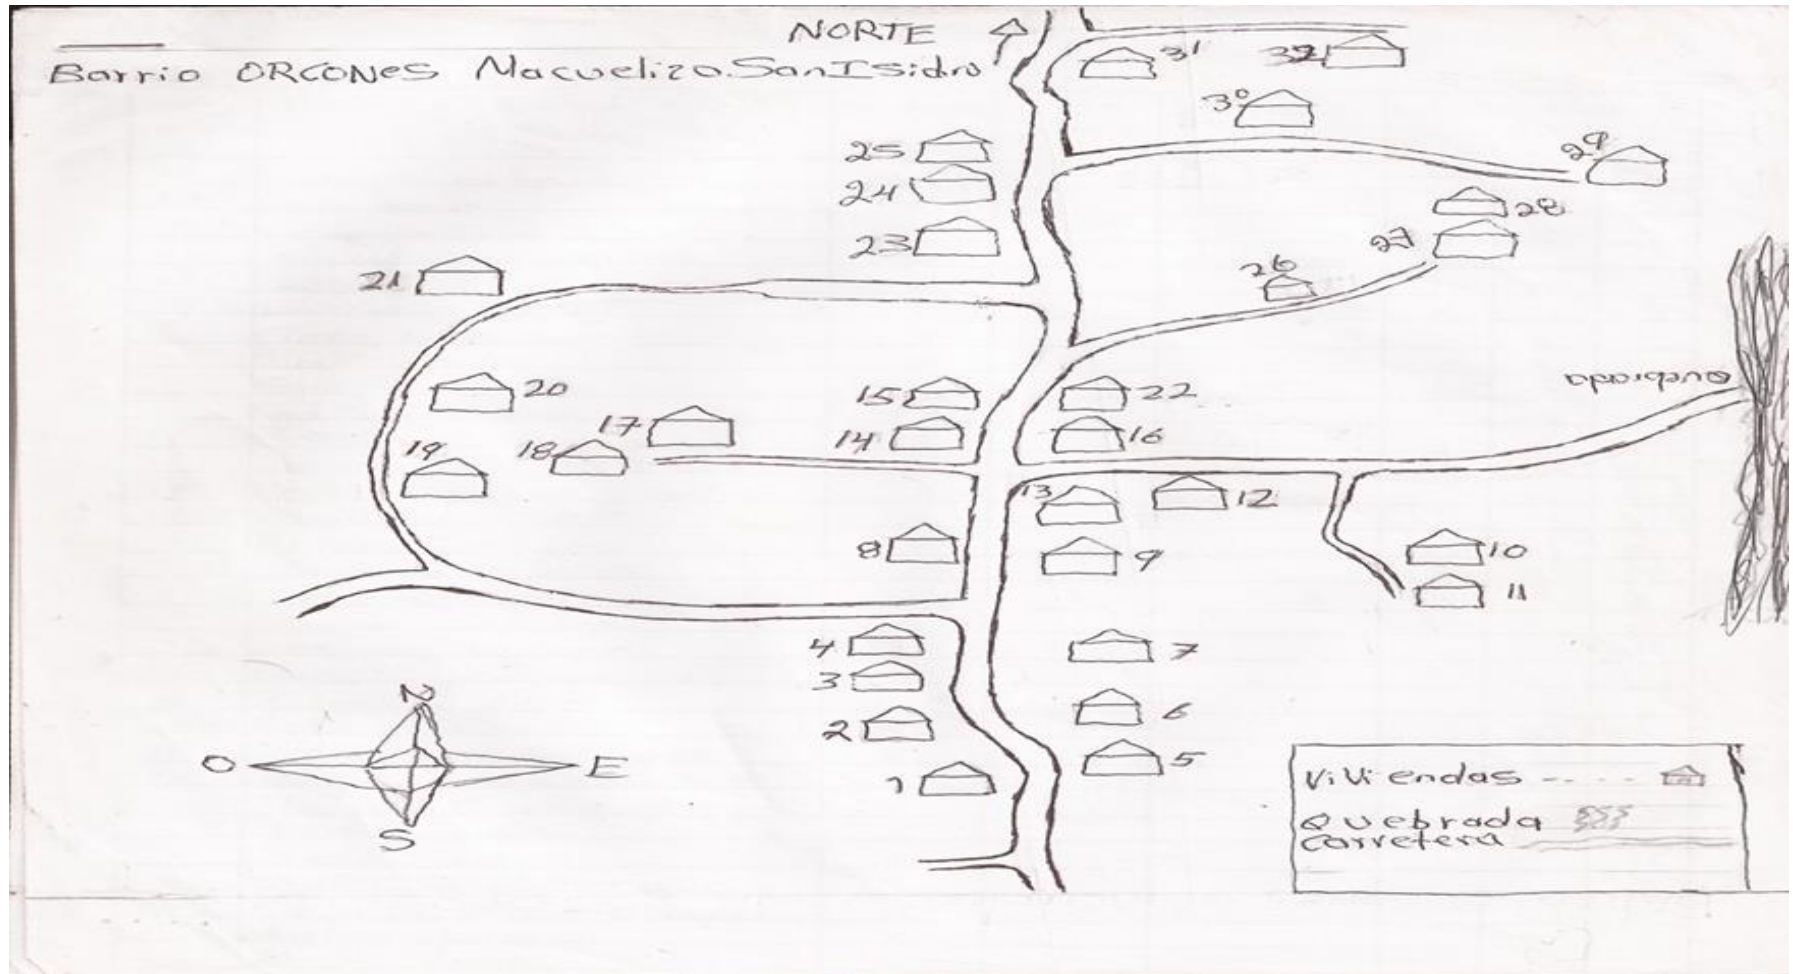 NORTE
Barrio ORCONES Macuelizo.SanIsidro
31
32
30
29
25
24
28
23
27
26
21
quebrada
20
15
22
17
14
16
19
18
13
12
8
9
10
11
4
7
3
6
2
5
1
N
O
E
S
ViVi endas
Quebrada
carretera